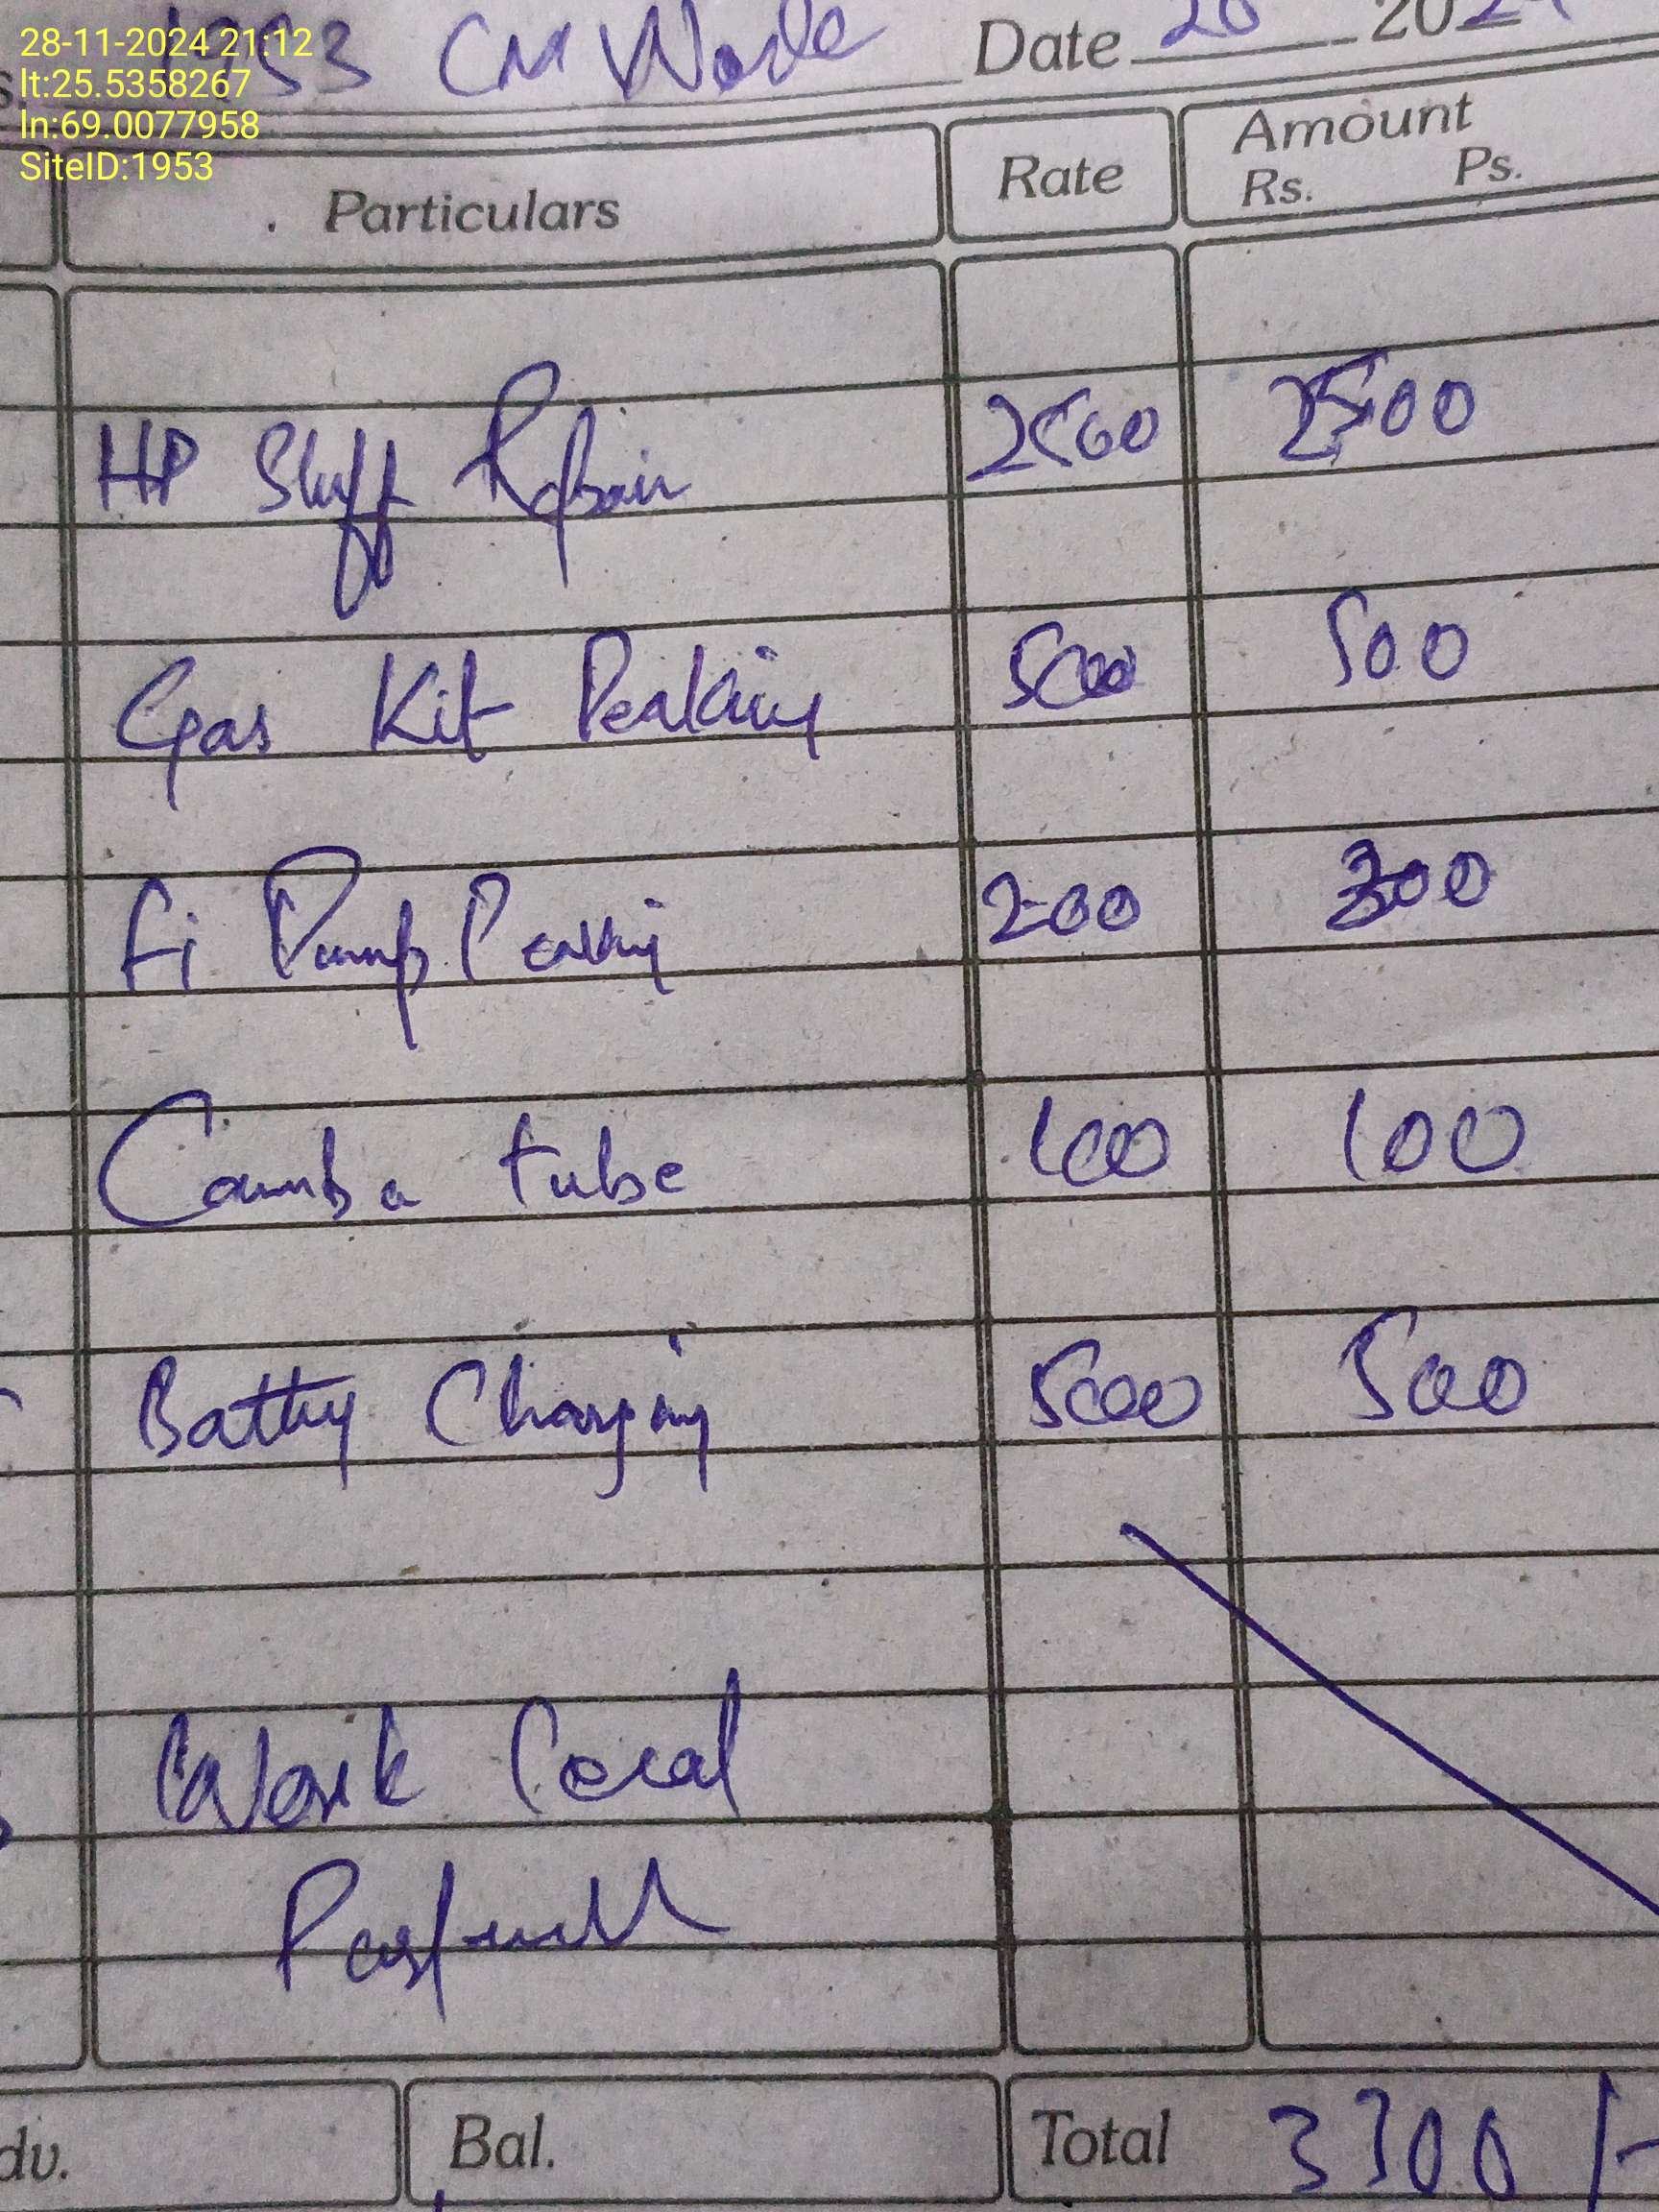 28-11-2024 21:12
lt:25.5358267
ln:69.0077958
SiteID:1953
1953 CM Date 2024
Particulars Rate Amount
Rs. Ps.
HP Shff Repair 2500 2500
Gas Kit Peaking 500 500
Fi Pump 200 300
Caumba tube 100 100
Battry Charging 500 500
Work
dv. Bal. Total 3300/-